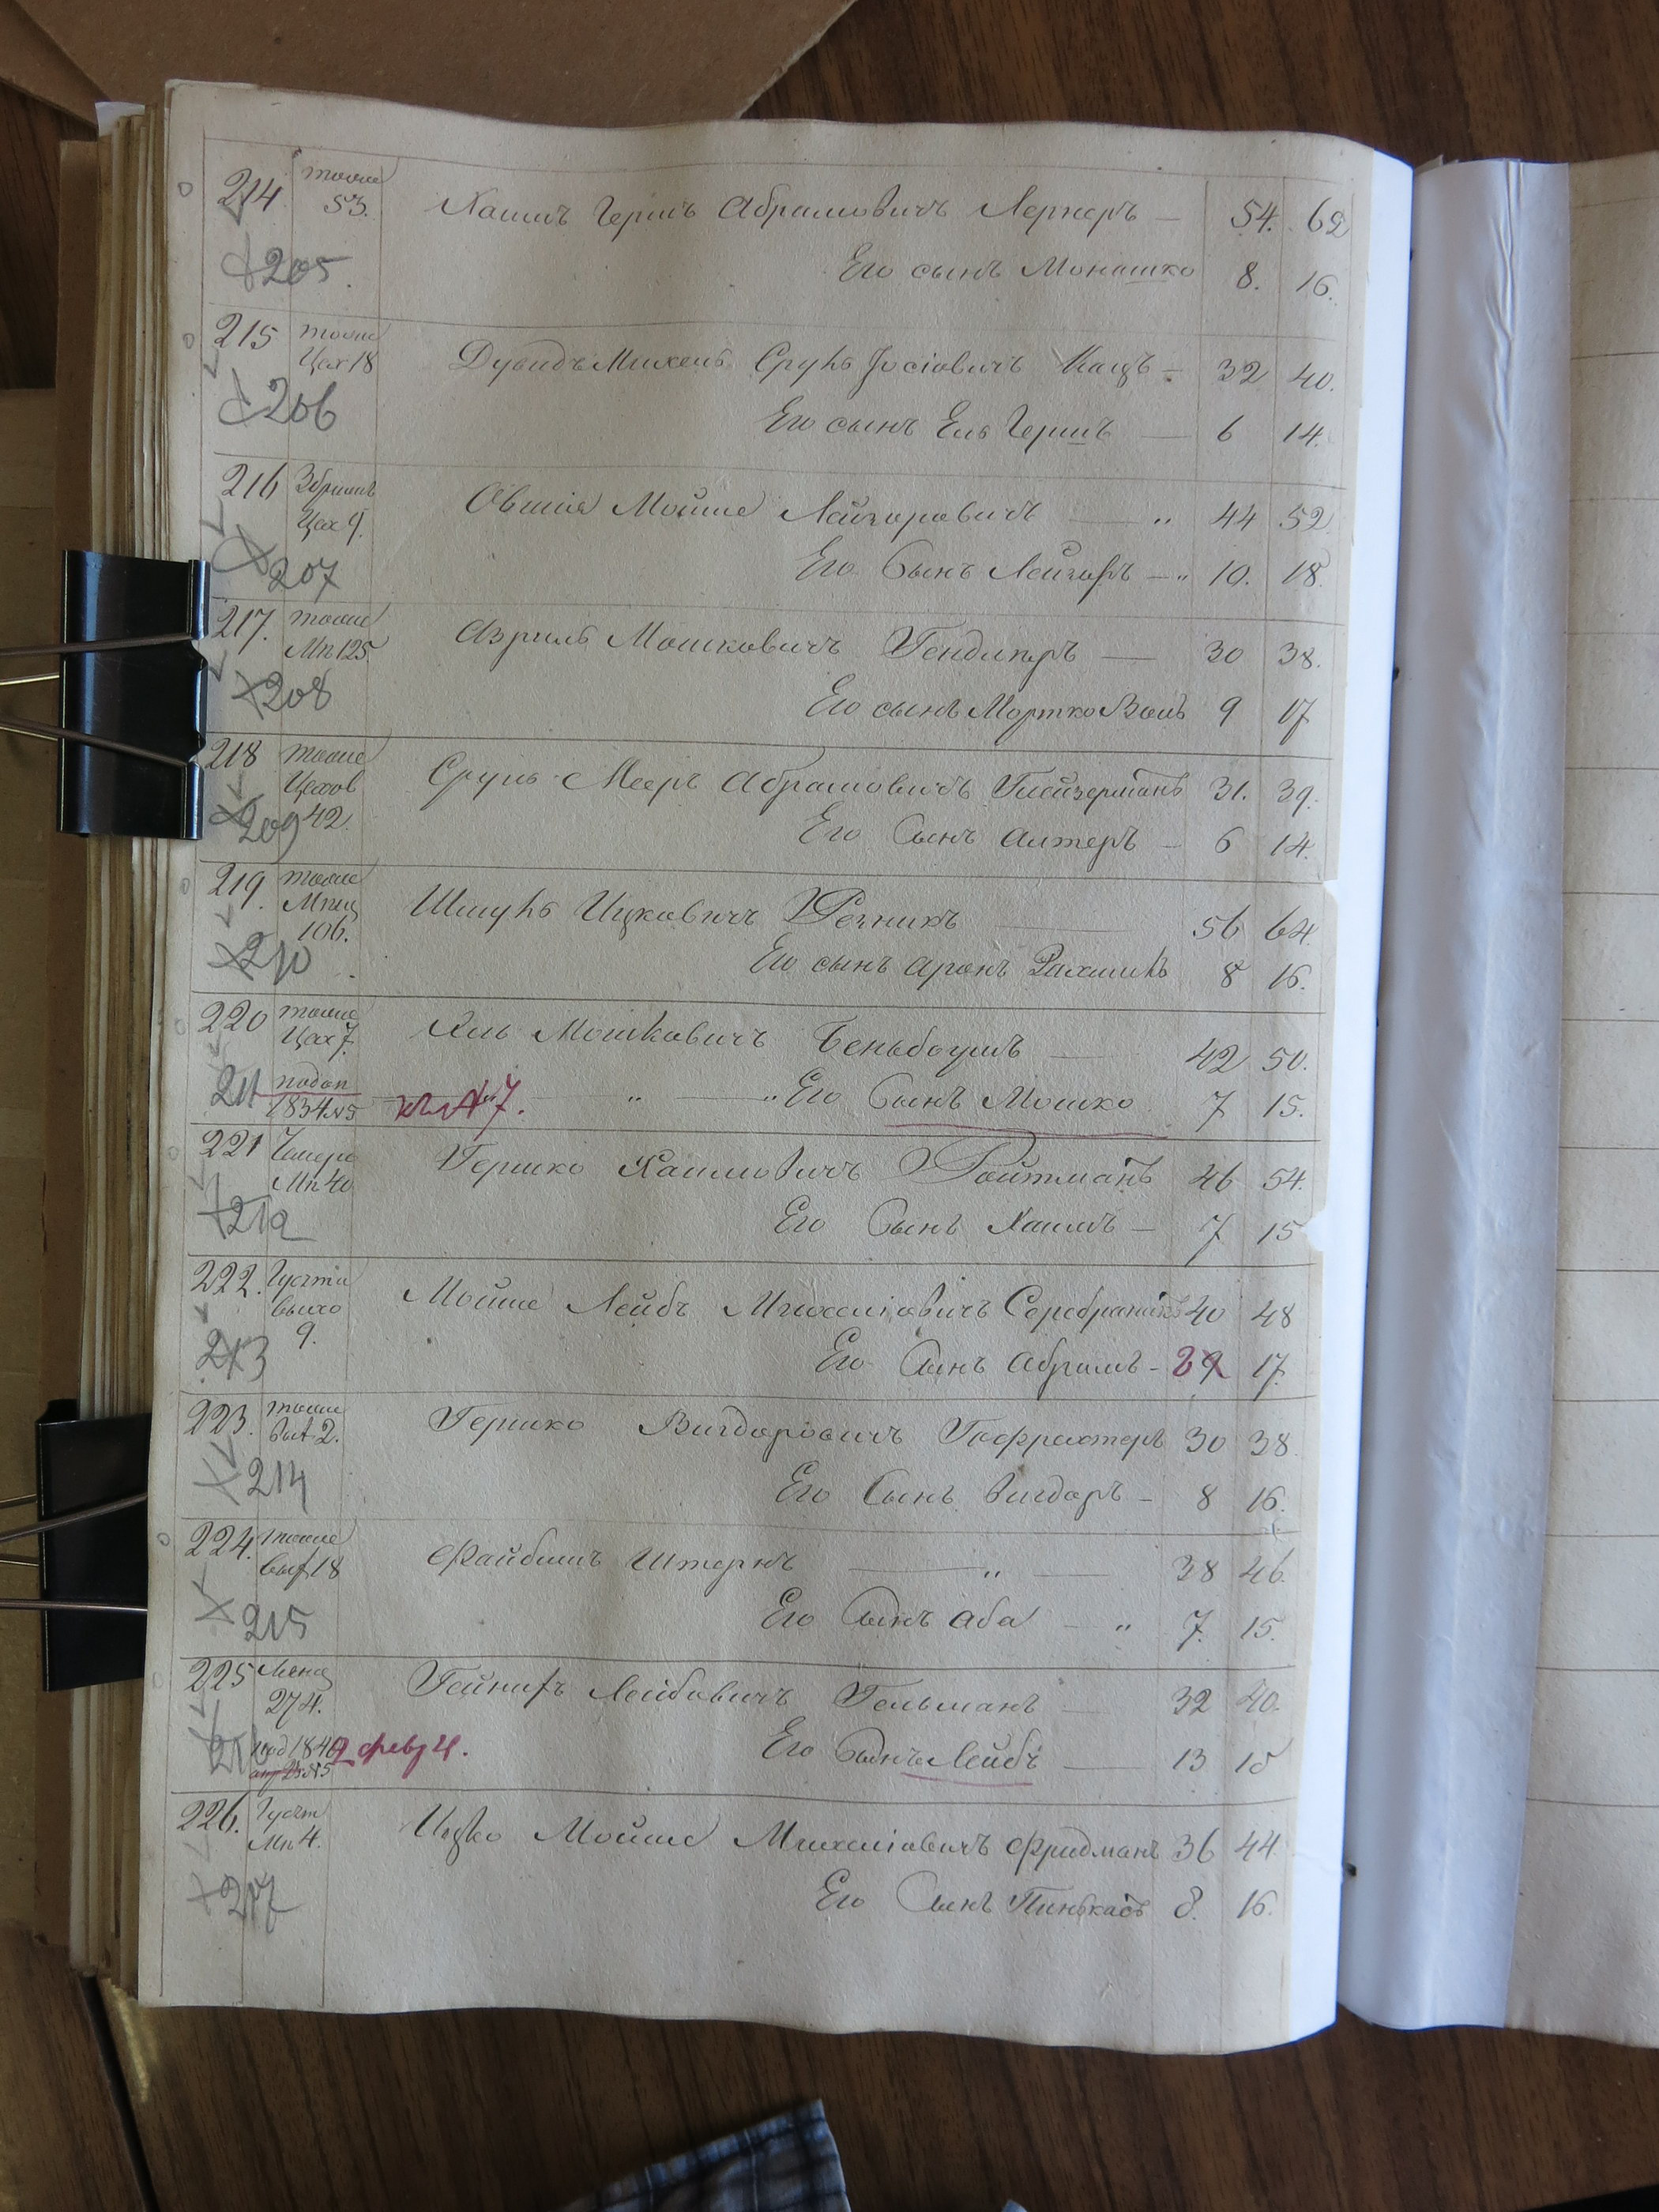 214 тоже 53. Хаимъ Гершъ Абрамовичъ Лернеръ — 54. 62
205. Его сынъ Монашко 8. 16.
215 тоже Цех 18 Дувидъ Михель Сруль Іосіовичъ Кацъ — 32 40.
206 Его сынъ Ель Гершъ — 6 14.
216 Цех 9. Овшія Мойше Лейзеровичъ — „ 44 52
207 Его Сынъ Лейзеръ — „ 10. 18.
217. тоже Мп 125 Азриль Мошковичъ Гендлеръ — 30 38.
208 Его сынъ Мортко Волъ 9 17
218 тоже Цехов 42. Сруль Мееръ Абрамовичъ Глейзерманъ 31. 39.
209 Его Сынъ Алтеръ — 6 14.
219. тоже Мпщ 106. Шмуль Ицковичъ Резникъ — 56 64.
210 Его сынъ Аронъ Рахмиль 8 16.
220 тоже Цех 7. Хиль Мошковичъ Беньбоумъ — 42 50.
211 подан 1834 № 5 № 7. — „ — „ Его Сынъ Мошко 7 15.
221 Мп 40 Гершко Хаимовичъ Ройтманъ 46 54.
212 Его Сынъ Хаимъ — 7 15
222. 9. Мойше Лейбъ Михелiовичъ Серебраникъ 40 48
213 Его Сынъ Абрамъ — 29 17.
223. тоже 2. Гершко Вигдоровичъ Гофрахтеръ 30 38
214 Его Сынъ Вигдоръ — 8 16.
224. тоже 18 Файбишъ Штернъ — „ — 38 46.
215 Его Сынъ Аба — „ 7. 15.
225 274. Гейнихъ Лейбовичъ Гельманъ — 32 40.
под 1840 февр 4. Его Сынъ Лейбъ — 13 15
226. Мп 4. Ицко Мойше Михелiовичъ Фридманъ 36 44.
217 Его Сынъ Пинькасъ 8. 16.